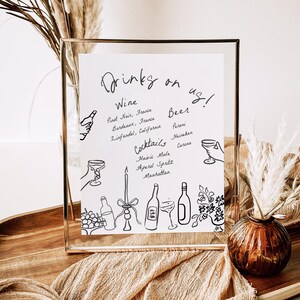 Drinks on us!
Wine
Pinot Noir, France
Bordeaux, France
Zinfandel, California
Beer
Peroni
Heineken
Corona
Cocktails
Moscow Mule
Aperol Spritz
Manhattan